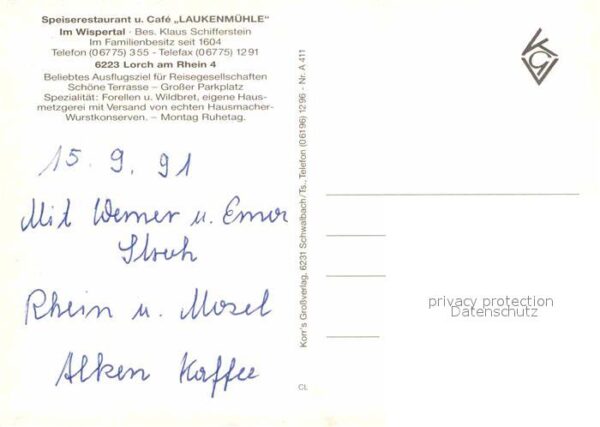 Speiserestaurant u. Café „LAUKENMÜHLE"
Im Wispertal · Bes. Klaus Schifferstein
Im Familienbesitz seit 1604
Telefon (06775) 355 - Telefax (06775) 1291
6223 Lorch am Rhein 4
Beliebtes Ausflugsziel für Reisegesellschaften
Schöne Terrasse – Großer Parkplatz
Spezialität: Forellen u. Wildbret, eigene Haus-
metzgerei mit Versand von echten Hausmacher-
Wurstkonserven. – Montag Ruhetag.
15.9.91
Mit Werner u.
Rhein u. Mosel
Alken Kaffee
Korr's Großverlag, 6231 Schwalbach/Ts., Telefon (06196) 1296 - Nr. A 411
CL
privacy protection
Datenschutz